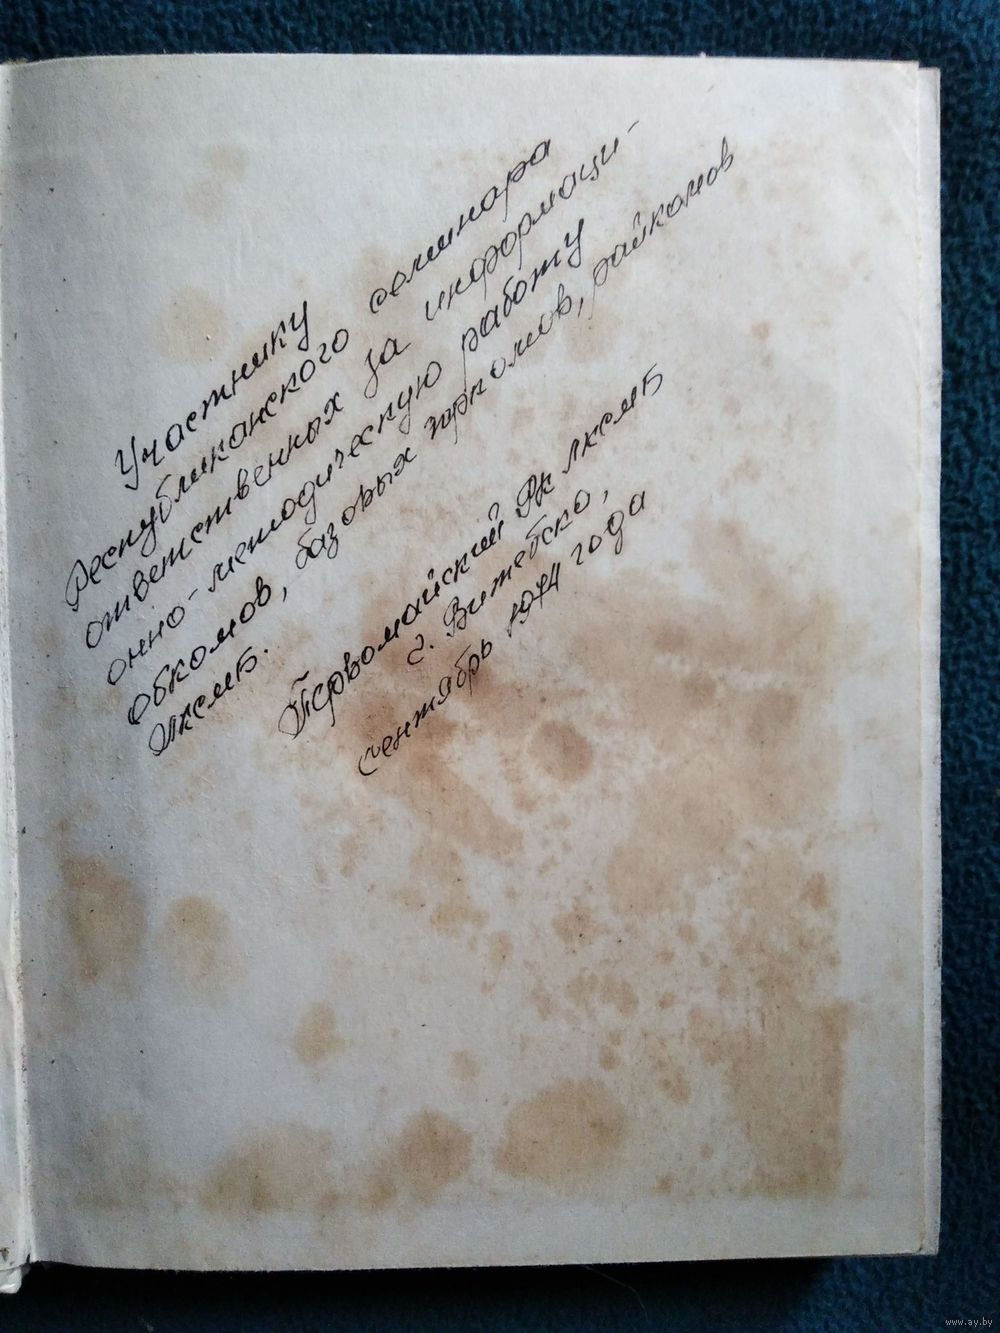 Участнику
Республиканского семинара
ответственных за информаци-
онно-методическую работу
обкомов, базовых горкомов, райкомов
ЛКСМБ.
Первомайский РК ЛКСМБ
г. Витебска,
сентябрь 1974 года
www.ay.by